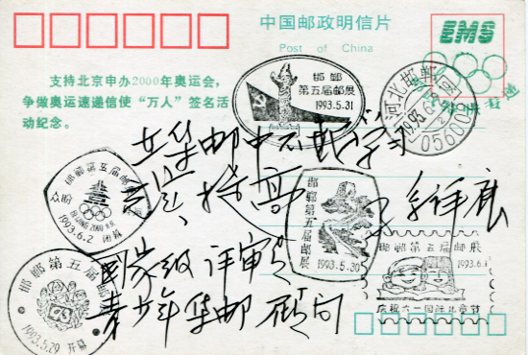 中国邮政明信片
Post of China
EMS
支持北京申办2000年奥运会，
争做奥运速递信使“万人”签名活
动纪念。
邯郸
第五届邮展
1993.5.31
河北邯郸
056000
在集邮中不断学习
提高
国家级评审员
青少年集邮顾问
邯郸第五届邮展
BEIJING 2000
1993.6.2 闭幕
邯郸第五届邮展
1993.5.30
邯郸第五届邮展
1993.6.1
庆祝六一国际儿童节
邯郸第五届邮展
1993.5.29 开幕